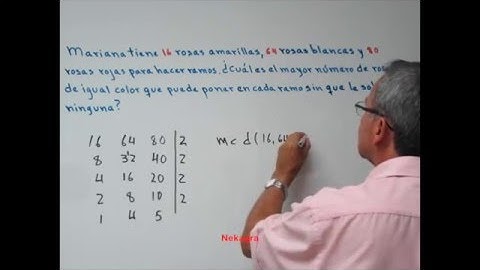 Mariana tiene 16 rosas amarillas, 64 rosas blancas y 80
rosas rojas para hacer ramos. ¿Cuál es el mayor número de
de igual color que puede poner en cada ramo sin que le
ninguna?
16 64 80 2
8 32 40 2
4 16 20 2
2 8 10 2
1 4 5
mcd(16,64
Nekagra